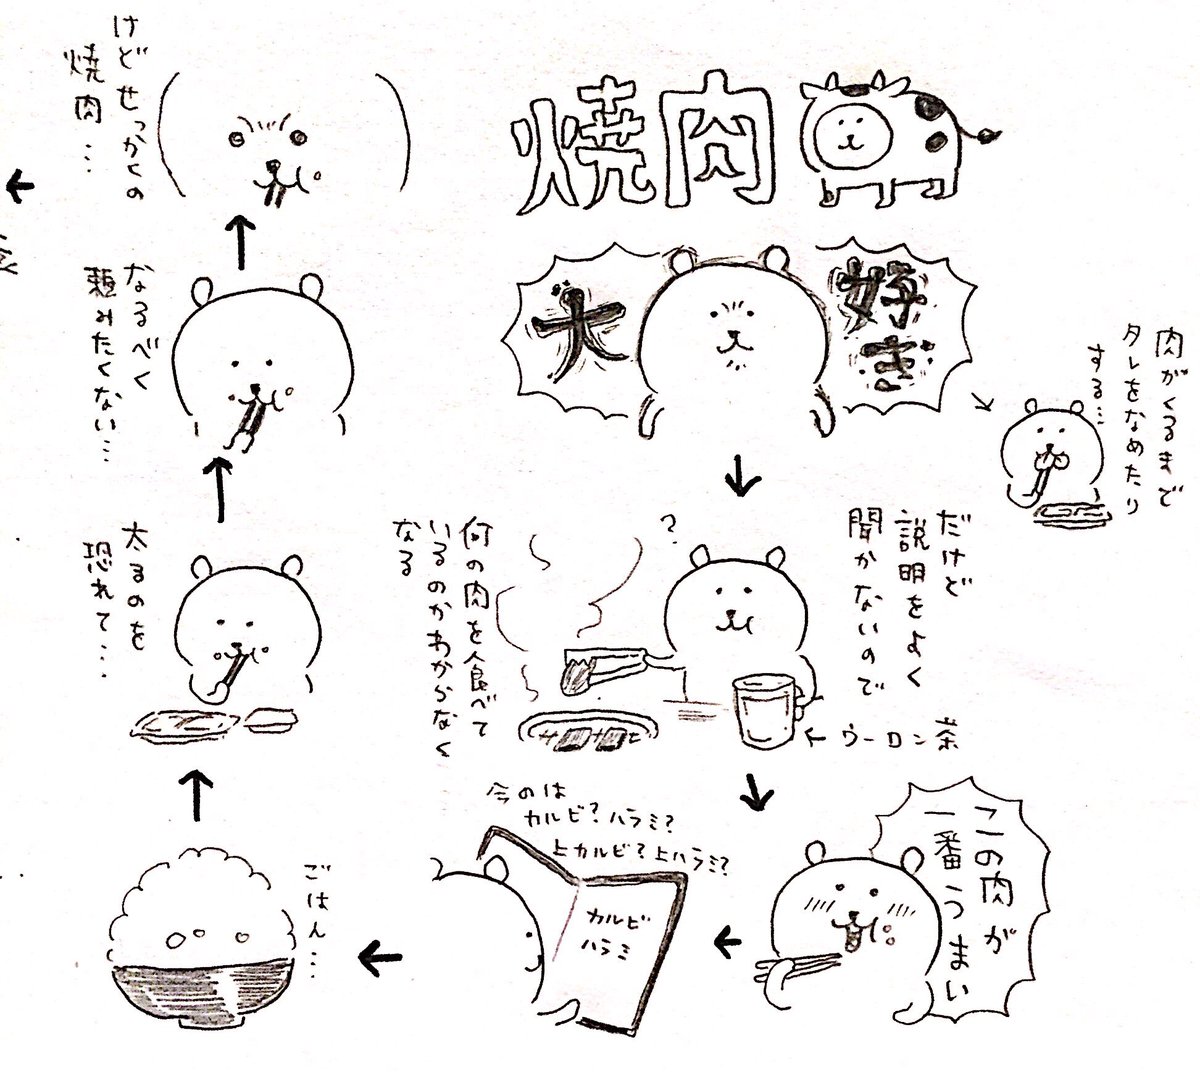 焼肉
大
好き
肉がくるまで
タレをなめたり
する…
だけど
説明をよく
聞かないので
?
何の肉を食べて
いるのかわからなく
なる
←ウーロン茶
この肉が
一番うまい
今のは
カルビ?ハラミ?
上カルビ?上ハラミ?
カルビ
ハラミ
ごはん…
太るのを
恐れて…
なるべく
頼みたくない…
けどせっかくの
焼肉…